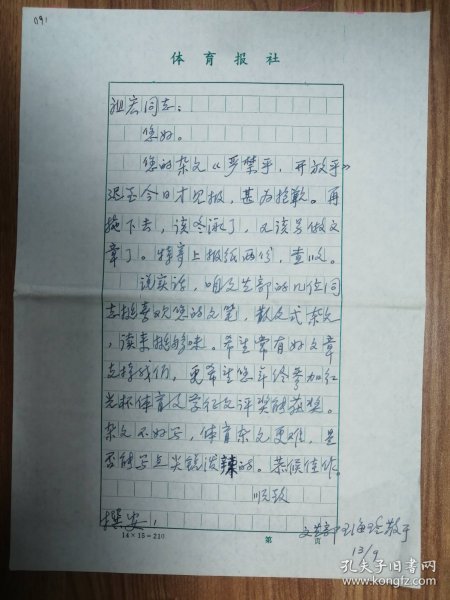 091
体育报社
祖宏同志：
您好。
您的杂文《严禁乎，开放乎》
迟至今日才见报，甚为抱歉。再
拖下去，该冬泳了，又该另做文
章了。特寄上报纸两份，查收。
说实话，咱文艺部的几位同
志挺喜欢您的文笔，散文式杂文，
读来挺够味。希望常有好文章
支持我们，更希望您年终参加红
光杯体育文学征文评奖能获奖。
杂文不好写，体育杂文更难，是
否能写点尖锐泼辣的。恭候佳作。
顺致
撰安！
文艺部 敬于
13/9
14×15=210
第 页
孔夫子旧书网